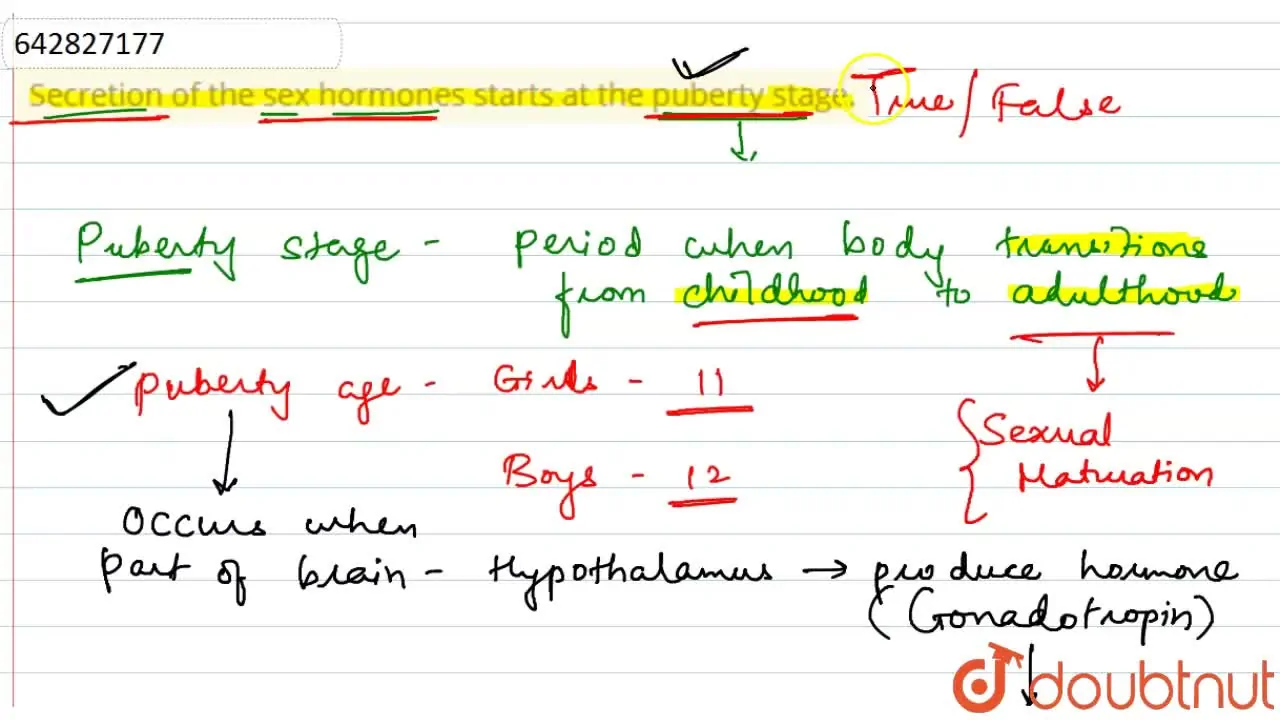 642827177
Secretion of the sex hormones starts at the puberty stage. True/False
Puberty stage - period when body transitions
from childhood to adulthood
Puberty age - Girls - 11
Sexual
Maturation
Boys - 12
Occurs when
part of brain - Hypothalamus → produce hormone
(Gonadotropin)
doubtnut